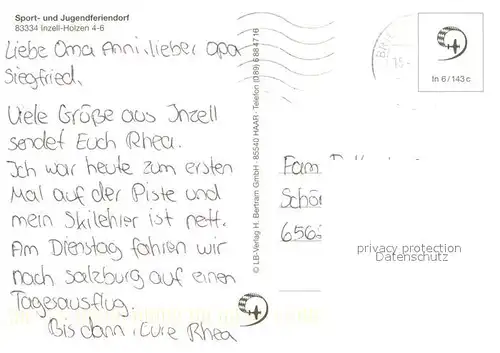 Sport- und Jugendferiendorf
83334 Inzell-Holzen 4-6
Liebe Oma Anni, lieber Opa
Siegfried,
Viele Grüße aus Inzell
sendet Euch Rhea.
Ich war heute zum ersten
Mal auf der Piste und
mein Skilehrer ist nett.
Am Dienstag fahren wir
nach Salzburg auf einen
Tagesausflug.
Bis dann, Eure Rhea
© LB-Verlag H. Bertram GmbH · 85540 HAAR · Telefon (089) 6 88 47 16
In 6/143 c
Fam.
Schön
privacy protection
Datenschutz